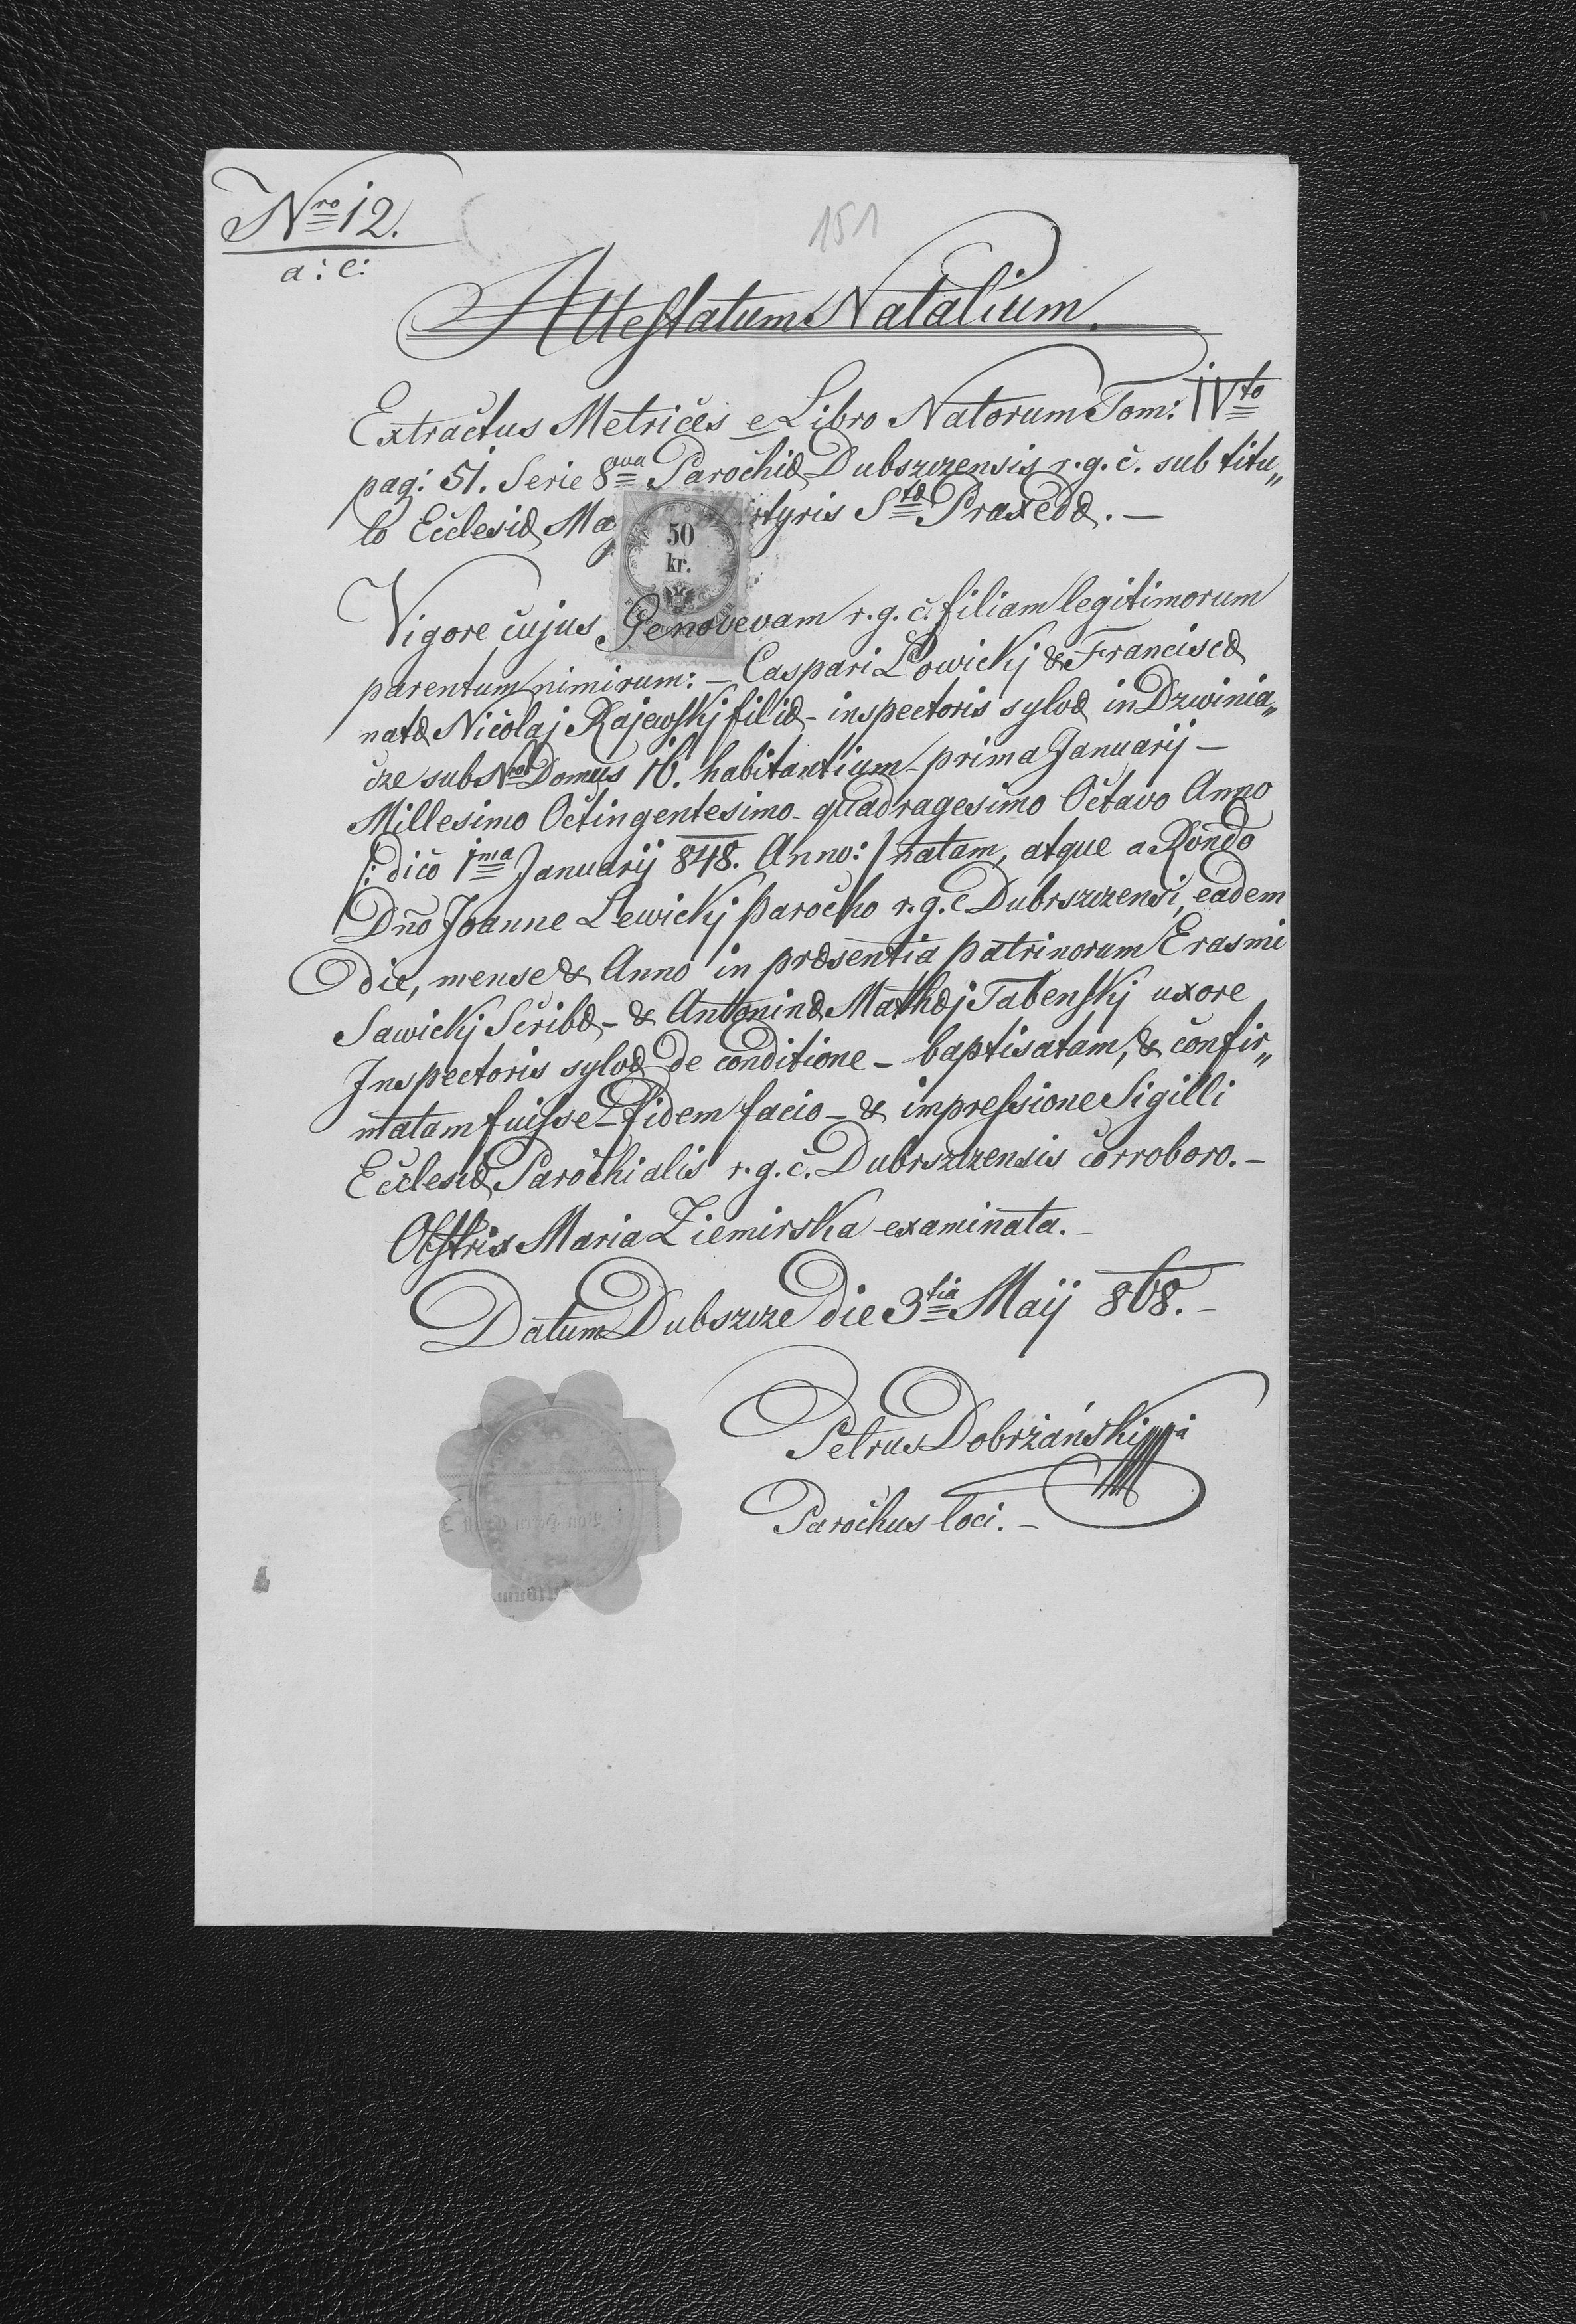 Nro 12.
a: c:
151
Attestatum Natalium.
Extractus Metrices e Libro Natorum Tom: IVto
pag: 51. Serie 8ava Parochiæ Dubszczensis r. g. c. sub titu„
lo Ecclesiæ Ma rtyris Stæ Praxedæ. —
50
kr.
Vigore cujus Genovevam r. g. c. filiam legitimorum
parentum nimirum: — Caspari Łowickj & Franciscæ
natæ Nicolaj Rajewskj filiæ - inspectoris sylvæ in Dzwinia„
cze sub Nro Domus 16. habitantium - prima Januarij —
Millesimo Octingentesimo - quadragesimo Octavo Anno
/: dico 1ma Januarij 848. Anno: / natam, atque a Rondo
Dno Joanne Lewickj parocho r. g. c Dubrszczensi, eadem
die, mense & Anno in præsentia patrinorum Erasmi
Sawickj Scribæ - & Antoninæ Mathæj Tabenskj uxore
Inspectoris sylvæ de conditione - baptisatam, & confir„
matam fuisse - fidem facio - & impressione Sigilli
Ecclesiæ Parochialis r. g. c. Dubrszczensis corroboro. —
Obstrix Maria Ziemirska examinata. —
Datum Dubszcze die 3tia Maij 868. —
Petrus Dobrżański mpia
Parochus loci. —